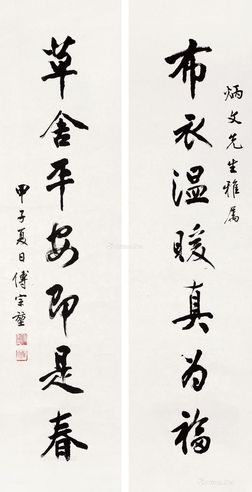 炳文先生雅属
布衣温暖真为福
草舍平安即是春
甲子夏日傅宗堃